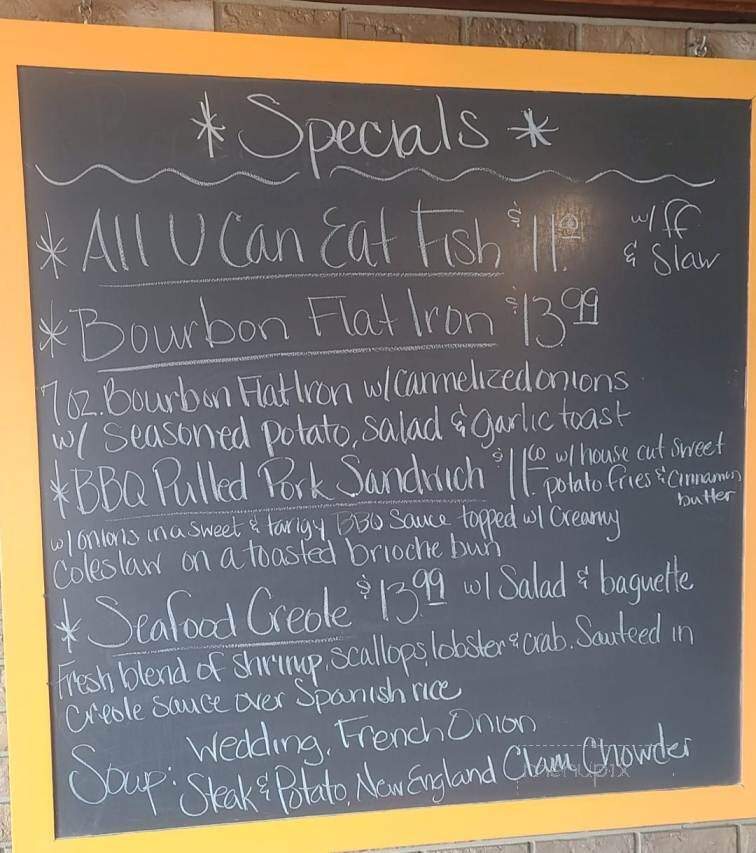 * Specials *
* All U Can Eat Fish $11. w/ ff & Slaw
* Bourbon Flat Iron $13.99
7 oz. Bourbon Flat Iron w/ carmelized onions
w/ Seasoned potato, salad & garlic toast
* BBQ Pulled Pork Sandwich $11.00 w/ house cut sweet potato fries & cinnamon butter
w/ onions in a sweet & tangy BBQ Sauce topped w/ Creamy
Coleslaw on a toasted brioche bun
* Seafood Creole $13.99 w/ Salad & baguette
Fresh blend of shrimp, scallops, lobster & crab. Sauteed in
Creole sauce over Spanish rice
Soup: Wedding, French Onion
Steak & Potato, New England Clam Chowder
menupix